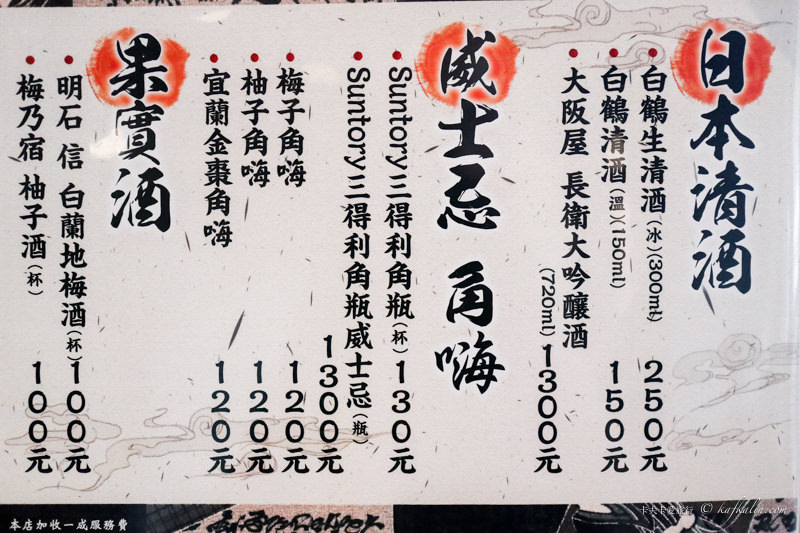 日本清酒
白鶴生清酒(冰)(300ml) 250元
白鶴清酒(溫)(150ml) 150元
大阪屋 長衛大吟釀酒
(720ml) 1300元
威士忌 角嗨
Suntory三得利角瓶(杯) 130元
Suntory三得利角瓶威士忌(瓶)
1300元
梅子角嗨 120元
柚子角嗨 120元
宜蘭金棗角嗨 120元
果實酒
明石 信 白蘭地梅酒(杯) 100元
梅乃宿 柚子酒(杯) 100元
本店加收一成服務費
卡夫卡愛旅行 © kafkalin.com